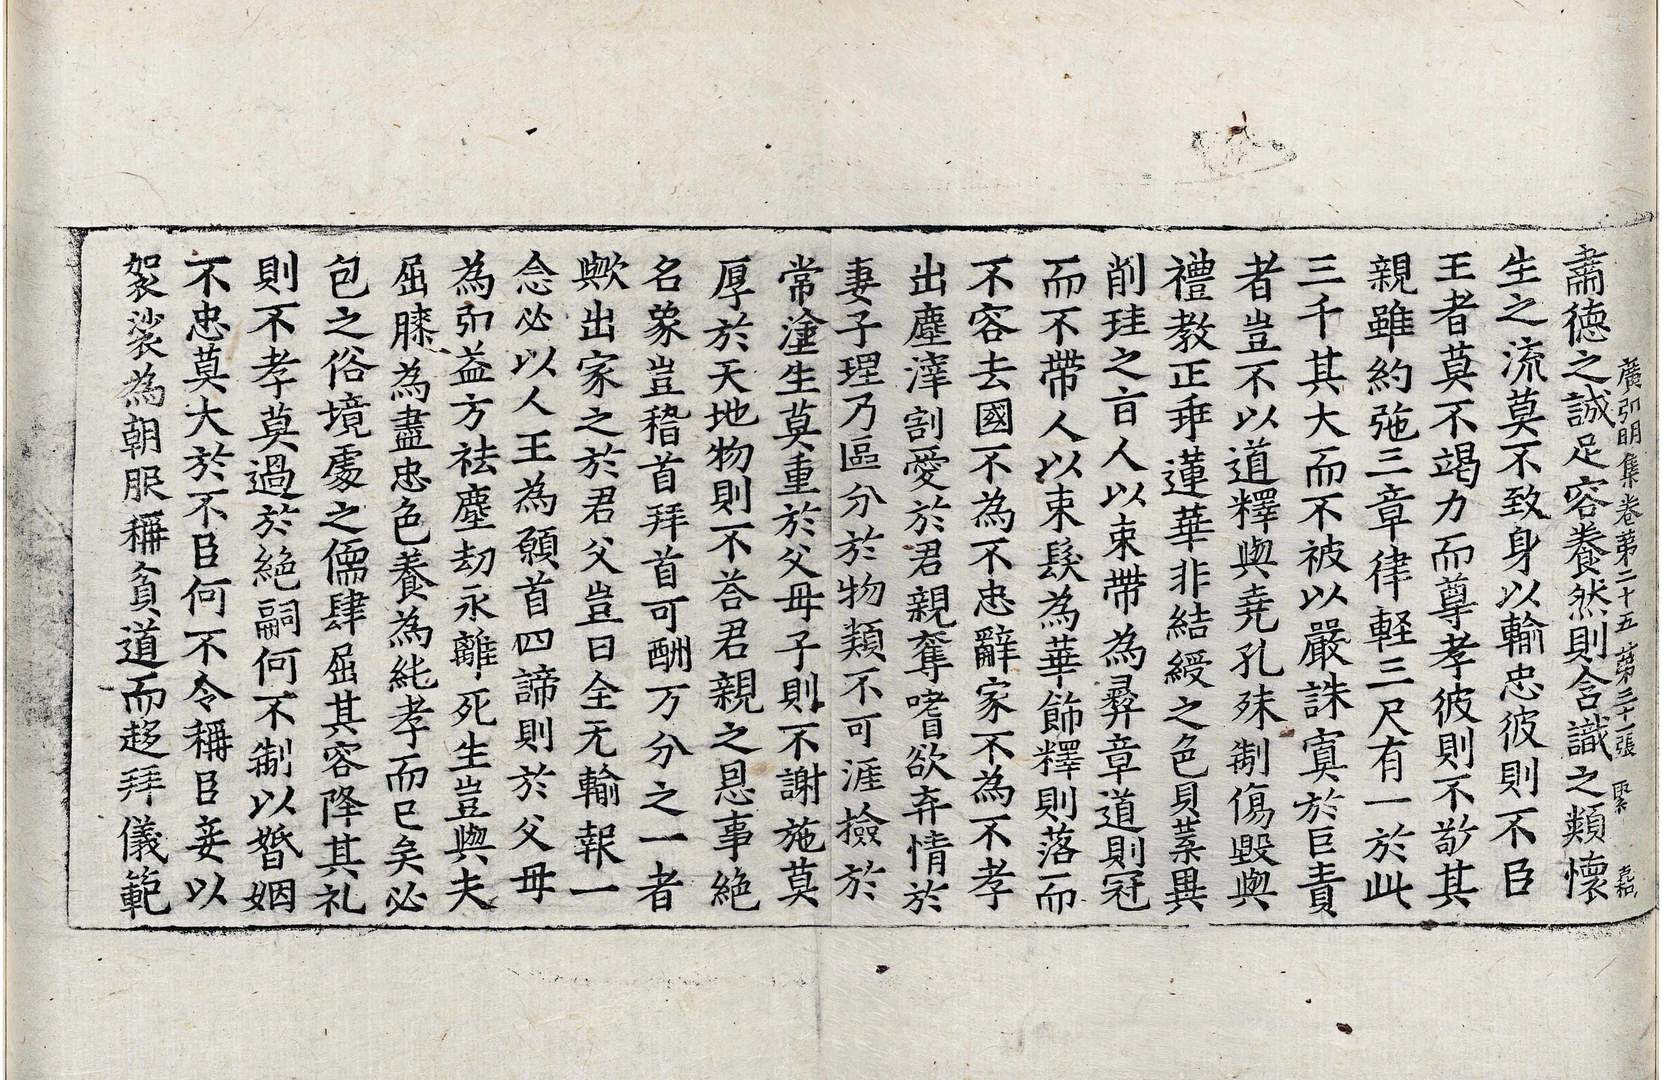 廣弘明集卷第二十五 第三十二張 聚 嘉
肅德之誠足容養然則含識之類懷
生之流莫不致身以輸忠彼則不臣
王者莫不竭力而尊孝彼則不敬其
親雖約弛三章律輕三尺有一於此
三千其大而不被以嚴誅寘於巨責
者豈不以道釋與堯孔殊制傷毀與
禮教正乖蓮華非結綬之色貝葉異
削珪之旨人以束帶為彝章道則冠
而不帶人以束髮為華飾釋則落而
不容去國不為不忠辭家不為不孝
出塵滓割愛於君親奪嗜欲弃情於
妻子理乃區分於物類不可涯撿於
常塗生莫重於父母子則不謝施莫
厚於天地物則不荅君親之恩事絕
名象豈稽首拜首可酬万分之一者
歟出家之於君父豈曰全无輸報一
念必以人王為願首四諦則於父母
為弘益方祛塵劫永離死生豈與夫
屈膝為盡忠色養為純孝而已矣必
包之俗境處之儒肆屈其容降其礼
則不孝莫過於絕嗣何不制以婚姻
不忠莫大於不臣何不令稱臣妾以
袈裟為朝服稱貧道而趍拜儀範